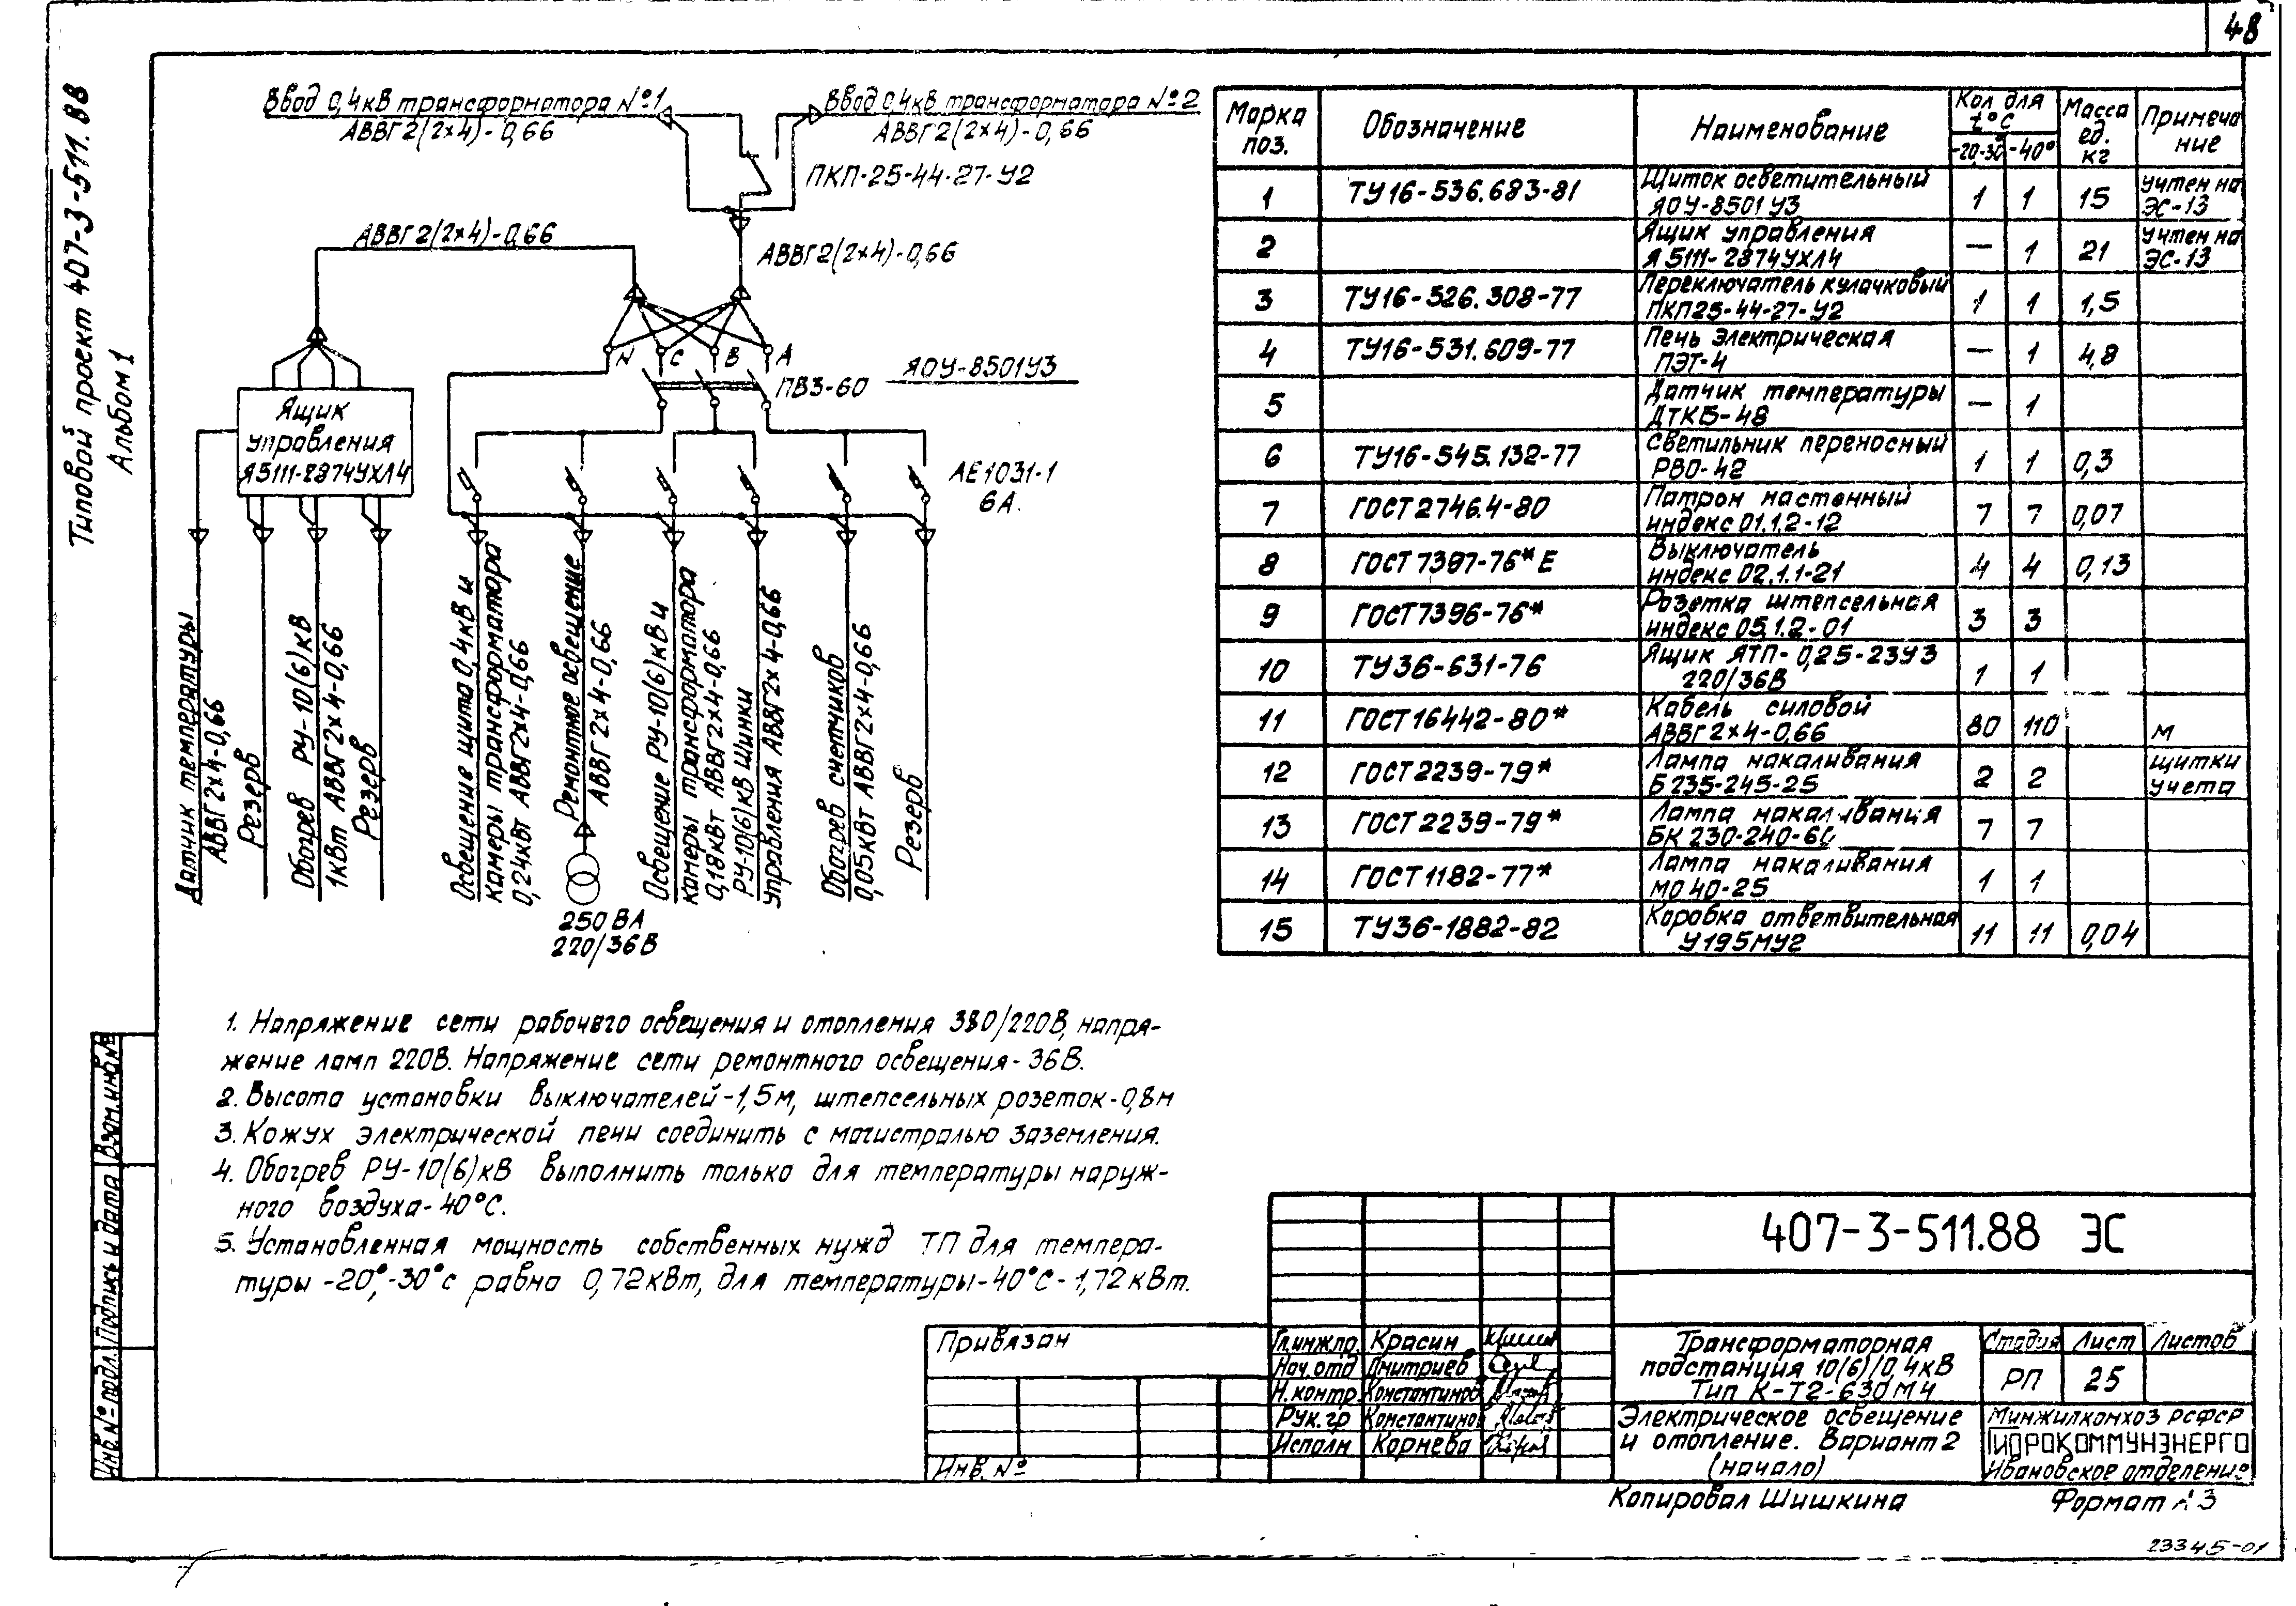 48
Типовой проект 407-3-511.88
Альбом 1
Ввод 0,4кВ трансформатора №1
АВВГ2(2×4)-0,66
Ввод 0,4кВ трансформатора №2
АВВГ2(2×4)-0,66
ПКП-25-44-27-У2
АВВГ2(2×4)-0,66
АВВГ2(2×4)-0,66
N С В А
ЯОУ-8501У3
ПВ3-60
Ящик
управления
Я5111-2874УХЛ4
АЕ1031-1
6А.
Датчик температуры
АВВГ2×4-0,66
Резерв
Обогрев РУ-10(6)кВ
1кВт АВВГ2×4-0,66
Резерв
Освещение щита 0,4кВ и
камеры трансформатора
0,24кВт АВВГ2×4-0,66
Ремонтное освещение
АВВГ2×4-0,66
250ВА
220/36В
Освещение РУ-10(6)кВ и
камеры трансформатора
0,18кВт АВВГ2×4-0,66
РУ-10(6)кВ Шинки
управления АВВГ2×4-0,66
Обогрев счетчиков
0,05кВт АВВГ2×4-0,66
Резерв
Марка поз. Обозначение Наименование Кол для t°С -20-30 -40° Масса ед. кг Примечание
1 ТУ16-536.683-81 Щиток осветительный ЯОУ-8501У3 1 1 15 учтен на ЭС-13
2 Ящик управления Я5111-2874УХЛ4 — 1 21 учтен на ЭС-13
3 ТУ16-526.308-77 Переключатель кулачковый ПКП25-44-27-У2 1 1 1,5
4 ТУ16-531.609-77 Печь электрическая ПЭТ-4 — 1 4,8
5 Датчик температуры ДТКБ-48 — 1
6 ТУ16-545.132-77 Светильник переносный РВО-42 1 1 0,3
7 ГОСТ2746.4-80 Патрон настенный индекс 01.1.2-12 7 7 0,07
8 ГОСТ7397-76*Е Выключатель индекс 02.1.1-21 4 4 0,13
9 ГОСТ7396-76* Розетка штепсельная индекс 05.1.2-01 3 3
10 ТУ36-631-76 Ящик ЯТП-0,25-23У3 220/36В 1 1
11 ГОСТ16442-80* Кабель силовой АВВГ2×4-0,66 80 110 м
12 ГОСТ2239-79* Лампа накаливания Б235-245-25 2 2 щитки учета
13 ГОСТ2239-79* Лампа накаливания БК230-240-60 7 7
14 ГОСТ1182-77* Лампа накаливания МО40-25 1 1
15 ТУ36-1882-82 Коробка ответвительная У195МУ2 11 11 0,04
1. Напряжение сети рабочего освещения и отопления 380/220В, напря-
жение ламп 220В. Напряжение сети ремонтного освещения-36В.
2. Высота установки выключателей-1,5м, штепсельных розеток-0,8м
3. Кожух электрической печи соединить с магистралью заземления.
4. Обогрев РУ-10(6)кВ выполнить только для температуры наруж-
ного воздуха-40°С.
5. Установленная мощность собственных нужд ТП для темпера-
туры -20°,-30°с равна 0,72кВт, для температуры-40°С-1,72кВт.
Инв.№подл. Подпись и дата Взам.инв№
Привязан
Инв.№
407-3-511.88 ЭС
Гл.инж.пр. Красин
Нач.отд Дмитриев
Н.контр. Константинов
Рук.гр Константинов
Исполн Корнева
Трансформаторная
подстанция 10(6)/0,4кВ
Тип К-Т2-630М4
Стадия Лист Листов
РП 25
Электрическое освещение
и отопление. Вариант 2
(начало)
Минжилкомхоз РСФСР
ГИПРОКОММУНЭНЕРГО
Ивановское отделение
Копировал Шишкина
Формат А3
23345-01